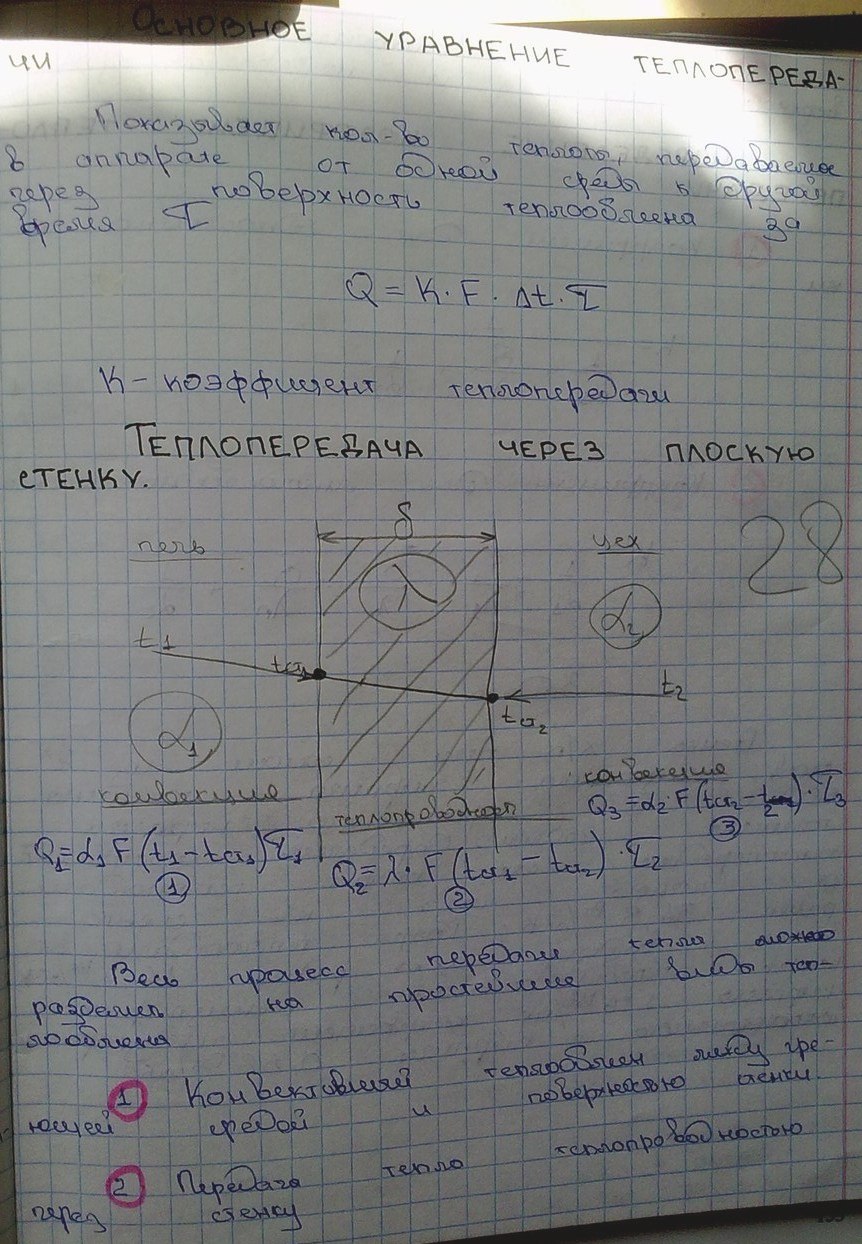 ОСНОВНОЕ УРАВНЕНИЕ ТЕПЛОПЕРЕДА-
ЧИ
Показывает кол-во теплоты, передаваемое
в аппарате от одной среды к другой
через поверхность теплообмена за
время τ
Q = K · F · Δt · τ
К – коэффициент теплопередачи
ТЕПЛОПЕРЕДАЧА ЧЕРЕЗ ПЛОСКУЮ
СТЕНКУ.
δ
печь
цех
28
λ
α₂
t₁
tст₁
t₂
tст₂
α₁
конвекция
конвекция
теплопроводност
Q₃ = α₂ · F (tст₂ – t₂) · τ₃
③
Q₁ = α₁ F (t₁ – tст₁) τ₁
①
Q₂ = λ · F (tст₁ – tст₂) · τ₂
②
Весь процесс передачи тепла можно
разделить на простейшие виды теп-
лообмена
① Конвективный теплообмен между гре-
ющей средой и поверхностью стенки
② Передача тепло теплопроводностью
через стенку